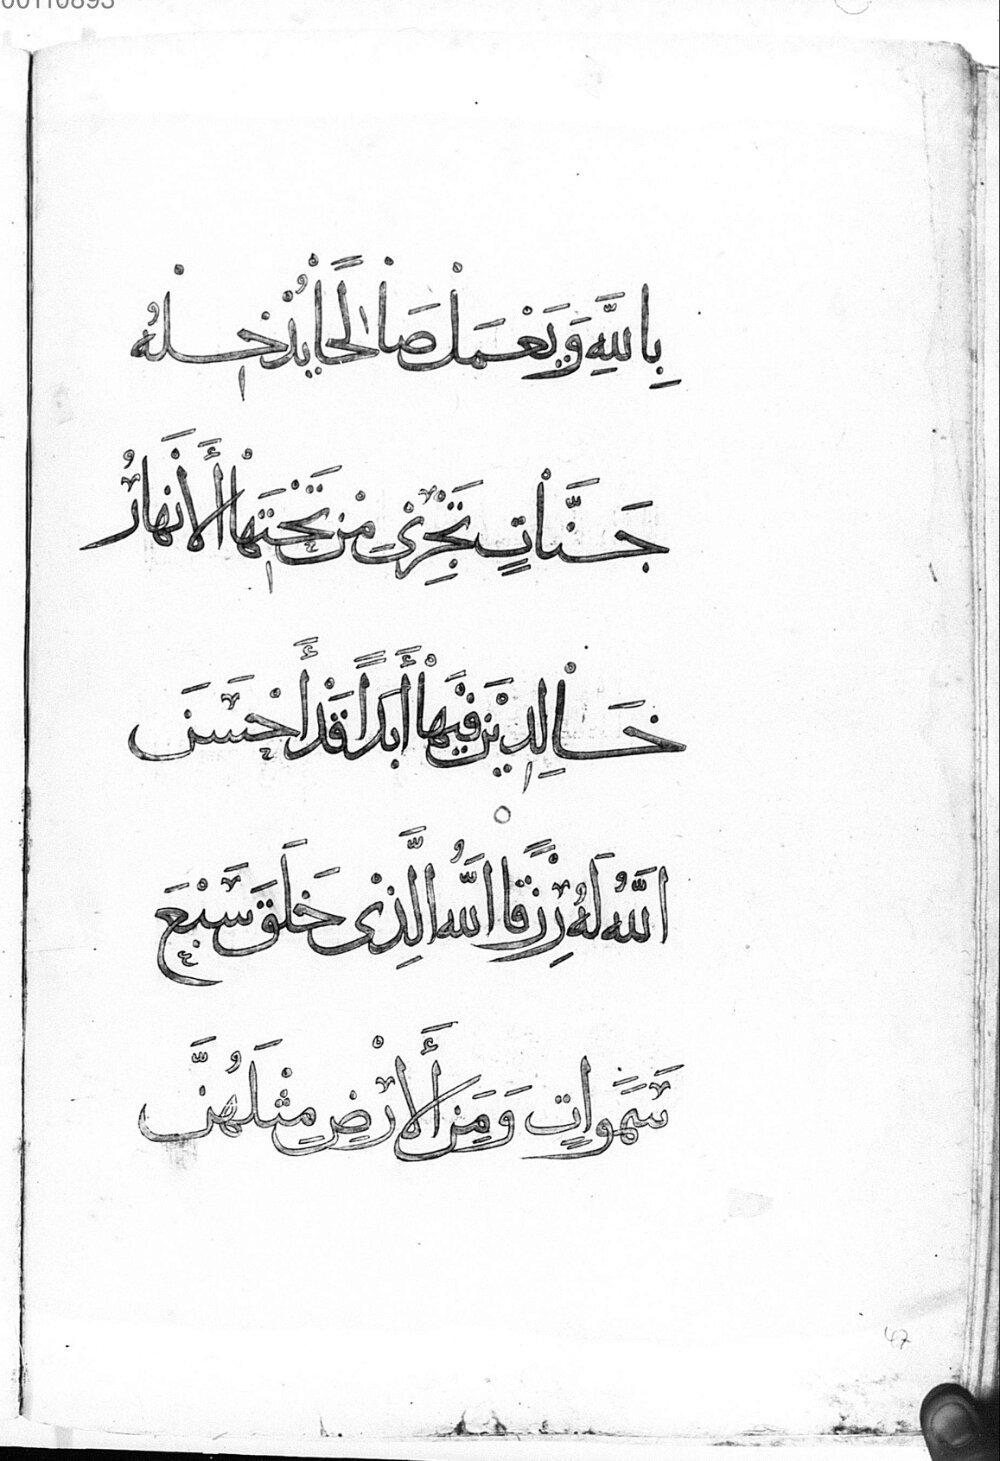 00110893
بِاللَّهِ وَيَعْمَلْ صَالِحًا يُدْخِلْهُ
جَنَّاتٍ تَجْرِي مِنْ تَحْتِهَا الْأَنْهَارُ
خَالِدِيْنَ فِيْهَا أَبَدًا قَدْ أَحْسَنَ
اللَّهُ لَهُ رِزْقًا اللَّهُ الَّذِيْ خَلَقَ سَبْعَ
سَمَوَاتٍ وَمِنَ الْأَرْضِ مِثْلَهُنَّ
47